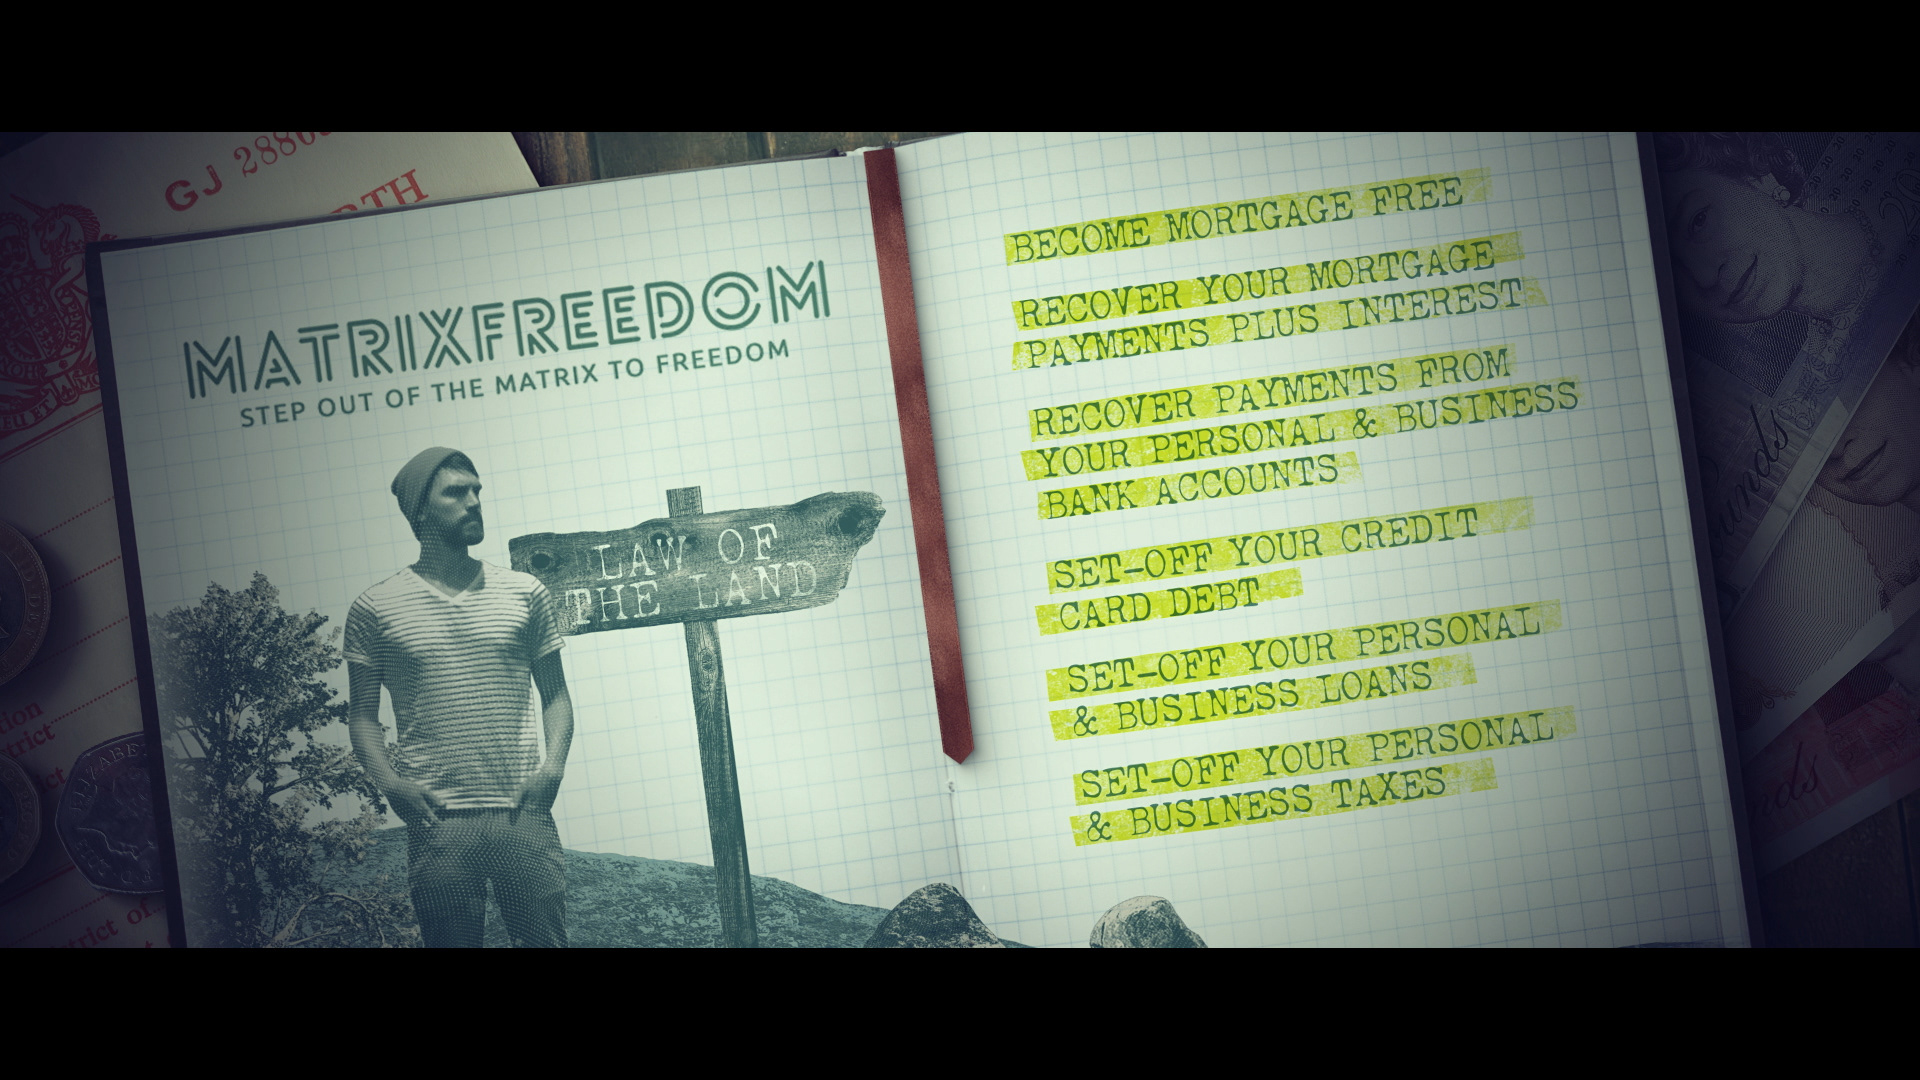 GJ 2886
RTH
MATRIXFREEDOM
STEP OUT OF THE MATRIX TO FREEDOM
LAW OF
THE LAND
BECOME MORTGAGE FREE
RECOVER YOUR MORTGAGE
PAYMENTS PLUS INTEREST
RECOVER PAYMENTS FROM
YOUR PERSONAL & BUSINESS
BANK ACCOUNTS
SET-OFF YOUR CREDIT
CARD DEBT
SET-OFF YOUR PERSONAL
& BUSINESS LOANS
SET-OFF YOUR PERSONAL
& BUSINESS TAXES